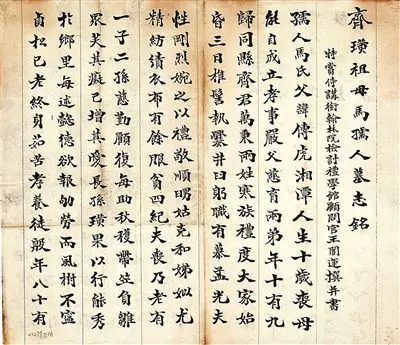 齊璜祖母馬孺人墓志銘
特賞侍講銜翰林院檢討禮學館顧問官王闓運撰并書
孺人馬氏父諱傳虎湘潭人生十歲喪母
能自成立孝事嚴父慈育兩弟年十有九
歸同縣齊君萬秉兩姓寒族禮度大家姑
昏三日椎髻執爨井臼躬職有慕孟光夫
性剛烈婉之以禮敬順明姑克和娣姒尤
精紡績衣布有餘服貧四紀夫喪乃老有
一子二孫慈勤顧復每助秋穫帶笠負雛
眾笑其癡己增其愛長孫璜果以行能秀
於鄉里每述懿德欲報劬勞而風樹不寧
貞松已老終身茹苦孝養徒殷年八十有